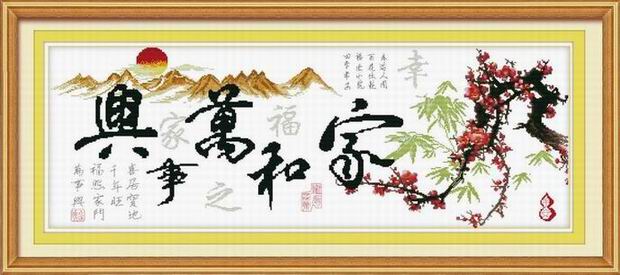 家和萬事興
幸福之家
春滿人间
百花吐艳
福临小院
四季常安
喜居寶地
千年旺
福照家門
萬事興